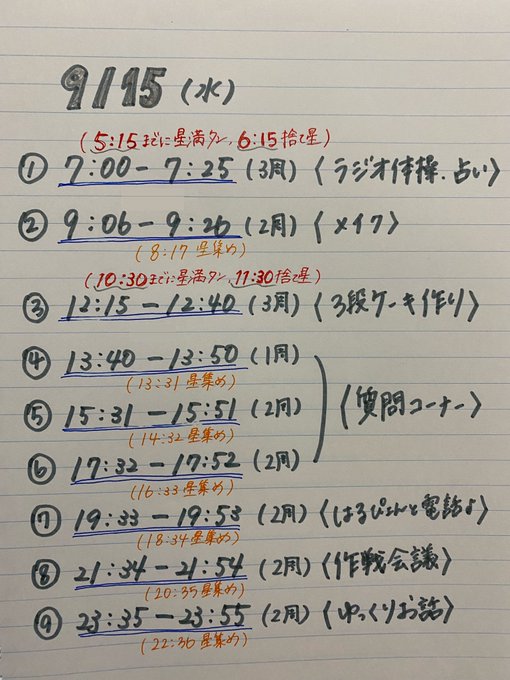 9/15 (水)
(5:15までに星満タン, 6:15捨て星)
① 7:00-7:25 (3周) 〈ラジオ体操. 占い〉
② 9:06-9:26 (2周) 〈メイク〉
(8:17 星集め)
(10:30までに星満タン, 11:30捨て星)
③ 12:15-12:40 (3周) 〈3段ケーキ作り〉
④ 13:40-13:50 (1周)
(13:31 星集め)
⑤ 15:31-15:51 (2周) 〈質問コーナー〉
(14:32 星集め)
⑥ 17:32-17:52 (2周)
(16:33 星集め)
⑦ 19:33-19:53 (2周) 〈はるぴょんと電話♪〉
(18:34 星集め)
⑧ 21:34-21:54 (2周) 〈作戦会議〉
(20:35 星集め)
⑨ 23:35-23:55 (2周) 〈ゆっくりお話〉
(22:36 星集め)